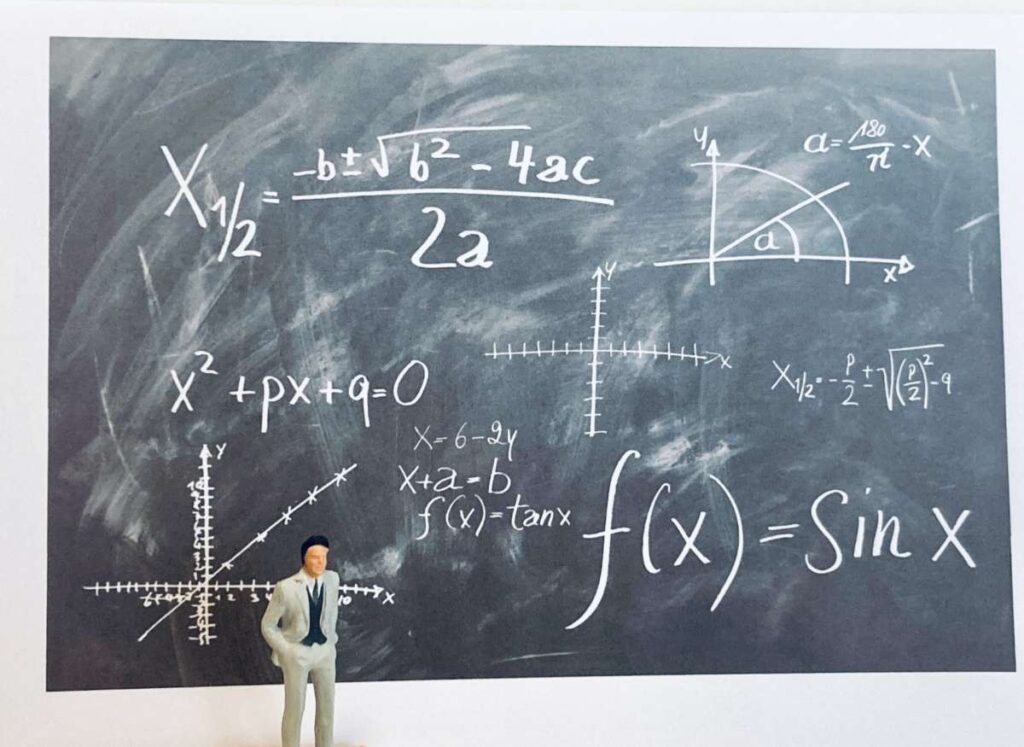 X1/2 = -b±√b² - 4ac / 2a
y
a = 180/π · x
a
x
y
x
x² + px + q = 0
X1/2 = -p/2 ± √(p/2)² - q
x = 6 - 2y
x + a = b
f(x) = tan x
f(x) = Sin x
y
1 2 3
10
x